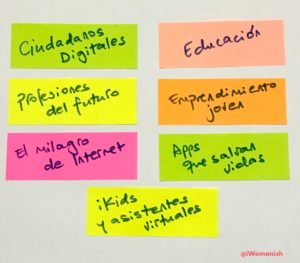 Ciudadanos
Digitales
Educación
Profesiones
del futuro
Emprendimiento
joven
El Milagro
de Internet
Apps
que salvan
vidas
iKids
y asistentes
virtuales
@iWomanish